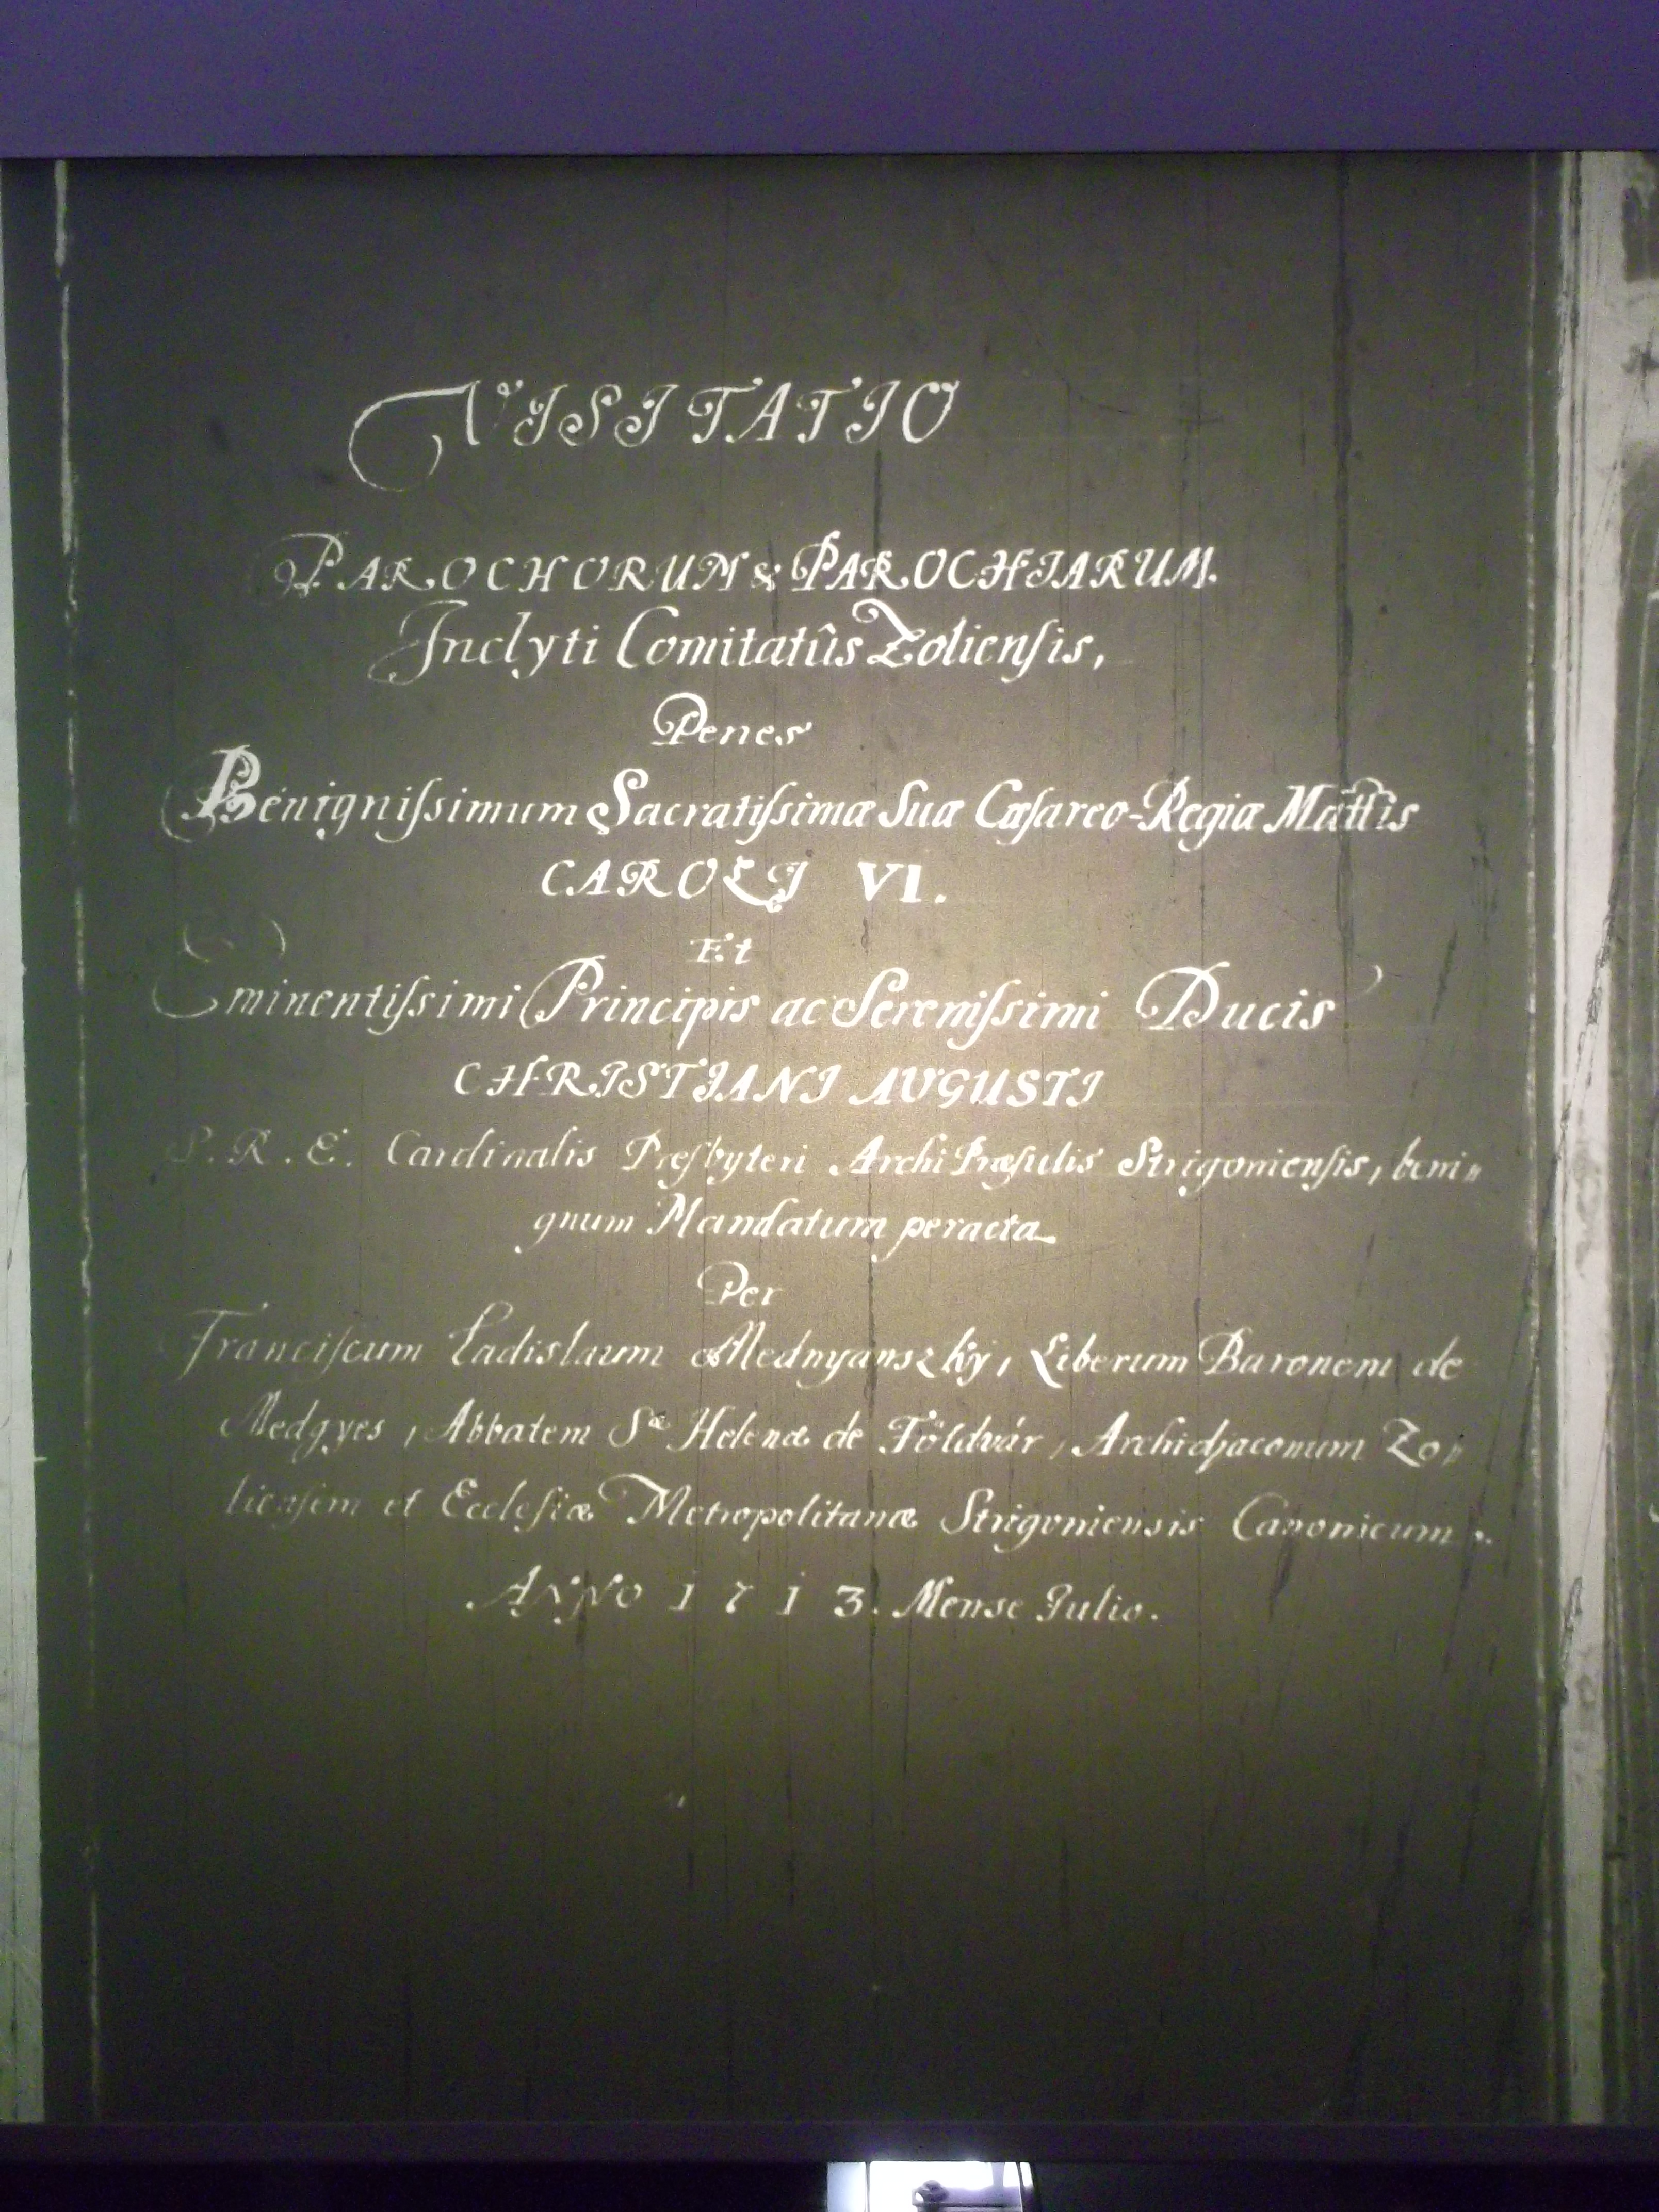 VISITATIO
PAROCHORUM & PAROCHIARUM
Inclyti Comitatûs Zoliensis,
Penes
Benignissimum Sacratissimæ Suæ Cæsareo-Regiæ Mattis
CAROLI VI.
Et
Eminentissimi Principis ac Serenissimi Ducis
CHRISTIANI AUGUSTI
S. R. E. Cardinalis Presbyteri Archi Præsulis Strigoniensis, beni〃
gnum Mandatum peracta
Per
Franciscum Ladislaum Mednyanszky, Liberum Baronem de
Medgyes, Abbatem Sæ Helenæ de Földvár, Archidjaconum Zo〃
liensem et Ecclesiæ Metropolitanæ Strigoniensis Canonicum.
ANNO 1713. Mense Julio.